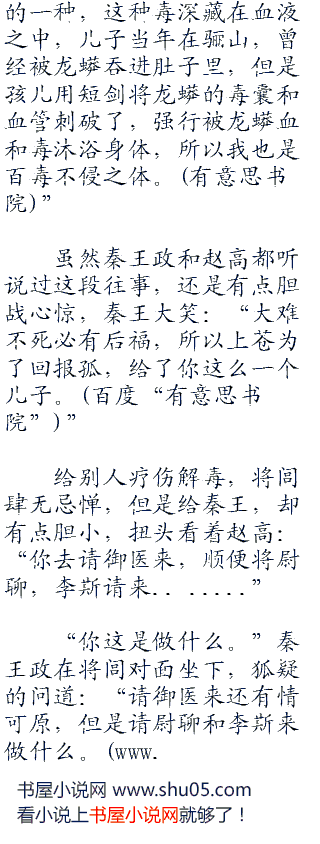 的一种，这种毒深藏在血液
之中，儿子当年在骊山，曾
经被龙蟒吞进肚子里，但是
孩儿用短剑将龙蟒的毒囊和
血管刺破了，强行被龙蟒血
和毒沐浴身体，所以我也是
百毒不侵之体。(有意思书
院)”
虽然秦王政和赵高都听
说过这段往事，还是有点胆
战心惊，秦王大笑：“大难
不死必有后福，所以上苍为
了回报孤，给了你这么一个
儿子。(百度“有意思书
院”)”
给别人疗伤解毒，将闾
肆无忌惮，但是给秦王，却
有点胆小，扭头看着赵高：
“你去请御医来，顺便将尉
聊，李斯请来．．．．．．．”
“你这是做什么。”秦
王政在将闾对面坐下，狐疑
的问道：“请御医来还有情
可原，但是请尉聊和李斯来
做什么。(www.
书屋小说网 www.shu05.com
看小说上书屋小说网就够了！